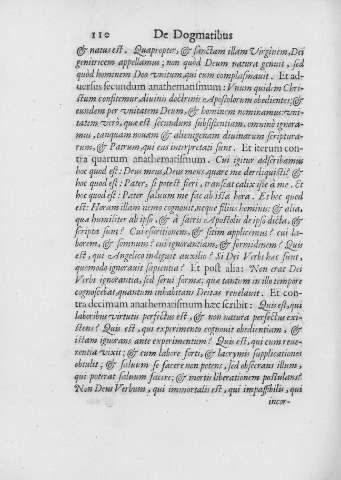 110 De Dogmatibus
& natus est. Quapropter, & sanctam illam Virginem, Dei
genitricem appellamus; non quòd Deum natura genuit, sed
quòd hominem Deo vnitum, qui eum complasmauit. Et ad-
uersus secundum anathematismum: Vnum quidem Chri-
stum confitemur, diuinis doctrinis Apostolorum obedientes; &
eundem per vnitatem Deum, & hominem nominamus: vni-
tatem verò, quæ est secundum subsistentiam, omninò ignora-
mus, tanquam nouam & alienigenam diuinarum scriptura-
rum, & Patrum, qui eas interpretati sunt. Et iterum con-
tra quartum anathematismum. Cui igitur adscribamus
hoc quod est: Deus meus, Deus meus, quare me dereliquisti? &
hoc quod est: Pater, si potest fieri, transeat calix iste à me. Et
hoc quod est: Pater saluum me fac ab ista hora. Et hoc quod
est: Horam illam nemo cognouit, neque filius hominis: & alia,
quæ humiliter ab ipso, & à sacris Apostolis de ipso dicta, &
scripta sunt? Cui esuritionem, & sitim applicemus? cui la-
borem, & somnum? cui ignorantiam, & formidinem? Quis
est, qui Angelico indiguit auxilio? Si Dei Verbi hæc sunt,
quomodo ignorauit sapientia? Et post alia: Non erat Dei
Verbi ignorantia, sed serui formæ, quæ tantum in illo tempore
cognoscebat, quantum inhabitans Deitas reuelauit. Et con-
tra decimum anathematismum hæc scribit: Quis est, qui
laboribus virtutis perfectus est, & non natura perfectus exi-
stens? Quis est, qui experimento cognouit obedientiam, &
istam ignorans ante experimentum? Quis est, qui cum reue-
rentia vixit; & cum labore forti, & lacrymis supplicationes
obtulit; & saluum se facere non potens, sed obsecrans illum,
qui poterat saluum facere; & mortis liberationem postulans?
Non Deus Verbum, qui immortalis est, qui impassibilis, qui
incor-